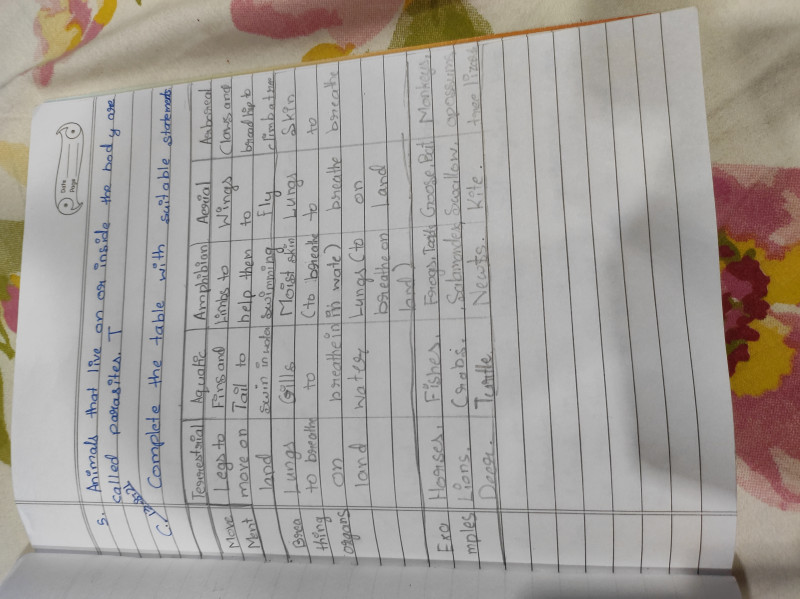 Date
Page
5. Animals that live on or inside the body are
called parasites. T
C. Complete the table with suitable statements
Terrestrial Aquatic Amphibian Aerial Arboreal
Move Legs to Fins and Limbs to Wings Claws and
Ment move on Tail to help them to broad
land swim in swimming fly climb
Brea Lungs Gills Moist skin Lungs Skin
thing to breathe to (to breathe to to
organs on breathe in in wate) breathe breathe
land water Lungs (to on
breathe on land
land)
Exa Horses, Fishes, Frogs, Goose, Bat Monkeys,
mples Lions, Crabs, Salamander, Swallow,
Deer. Turtle Newts. Kite. tree